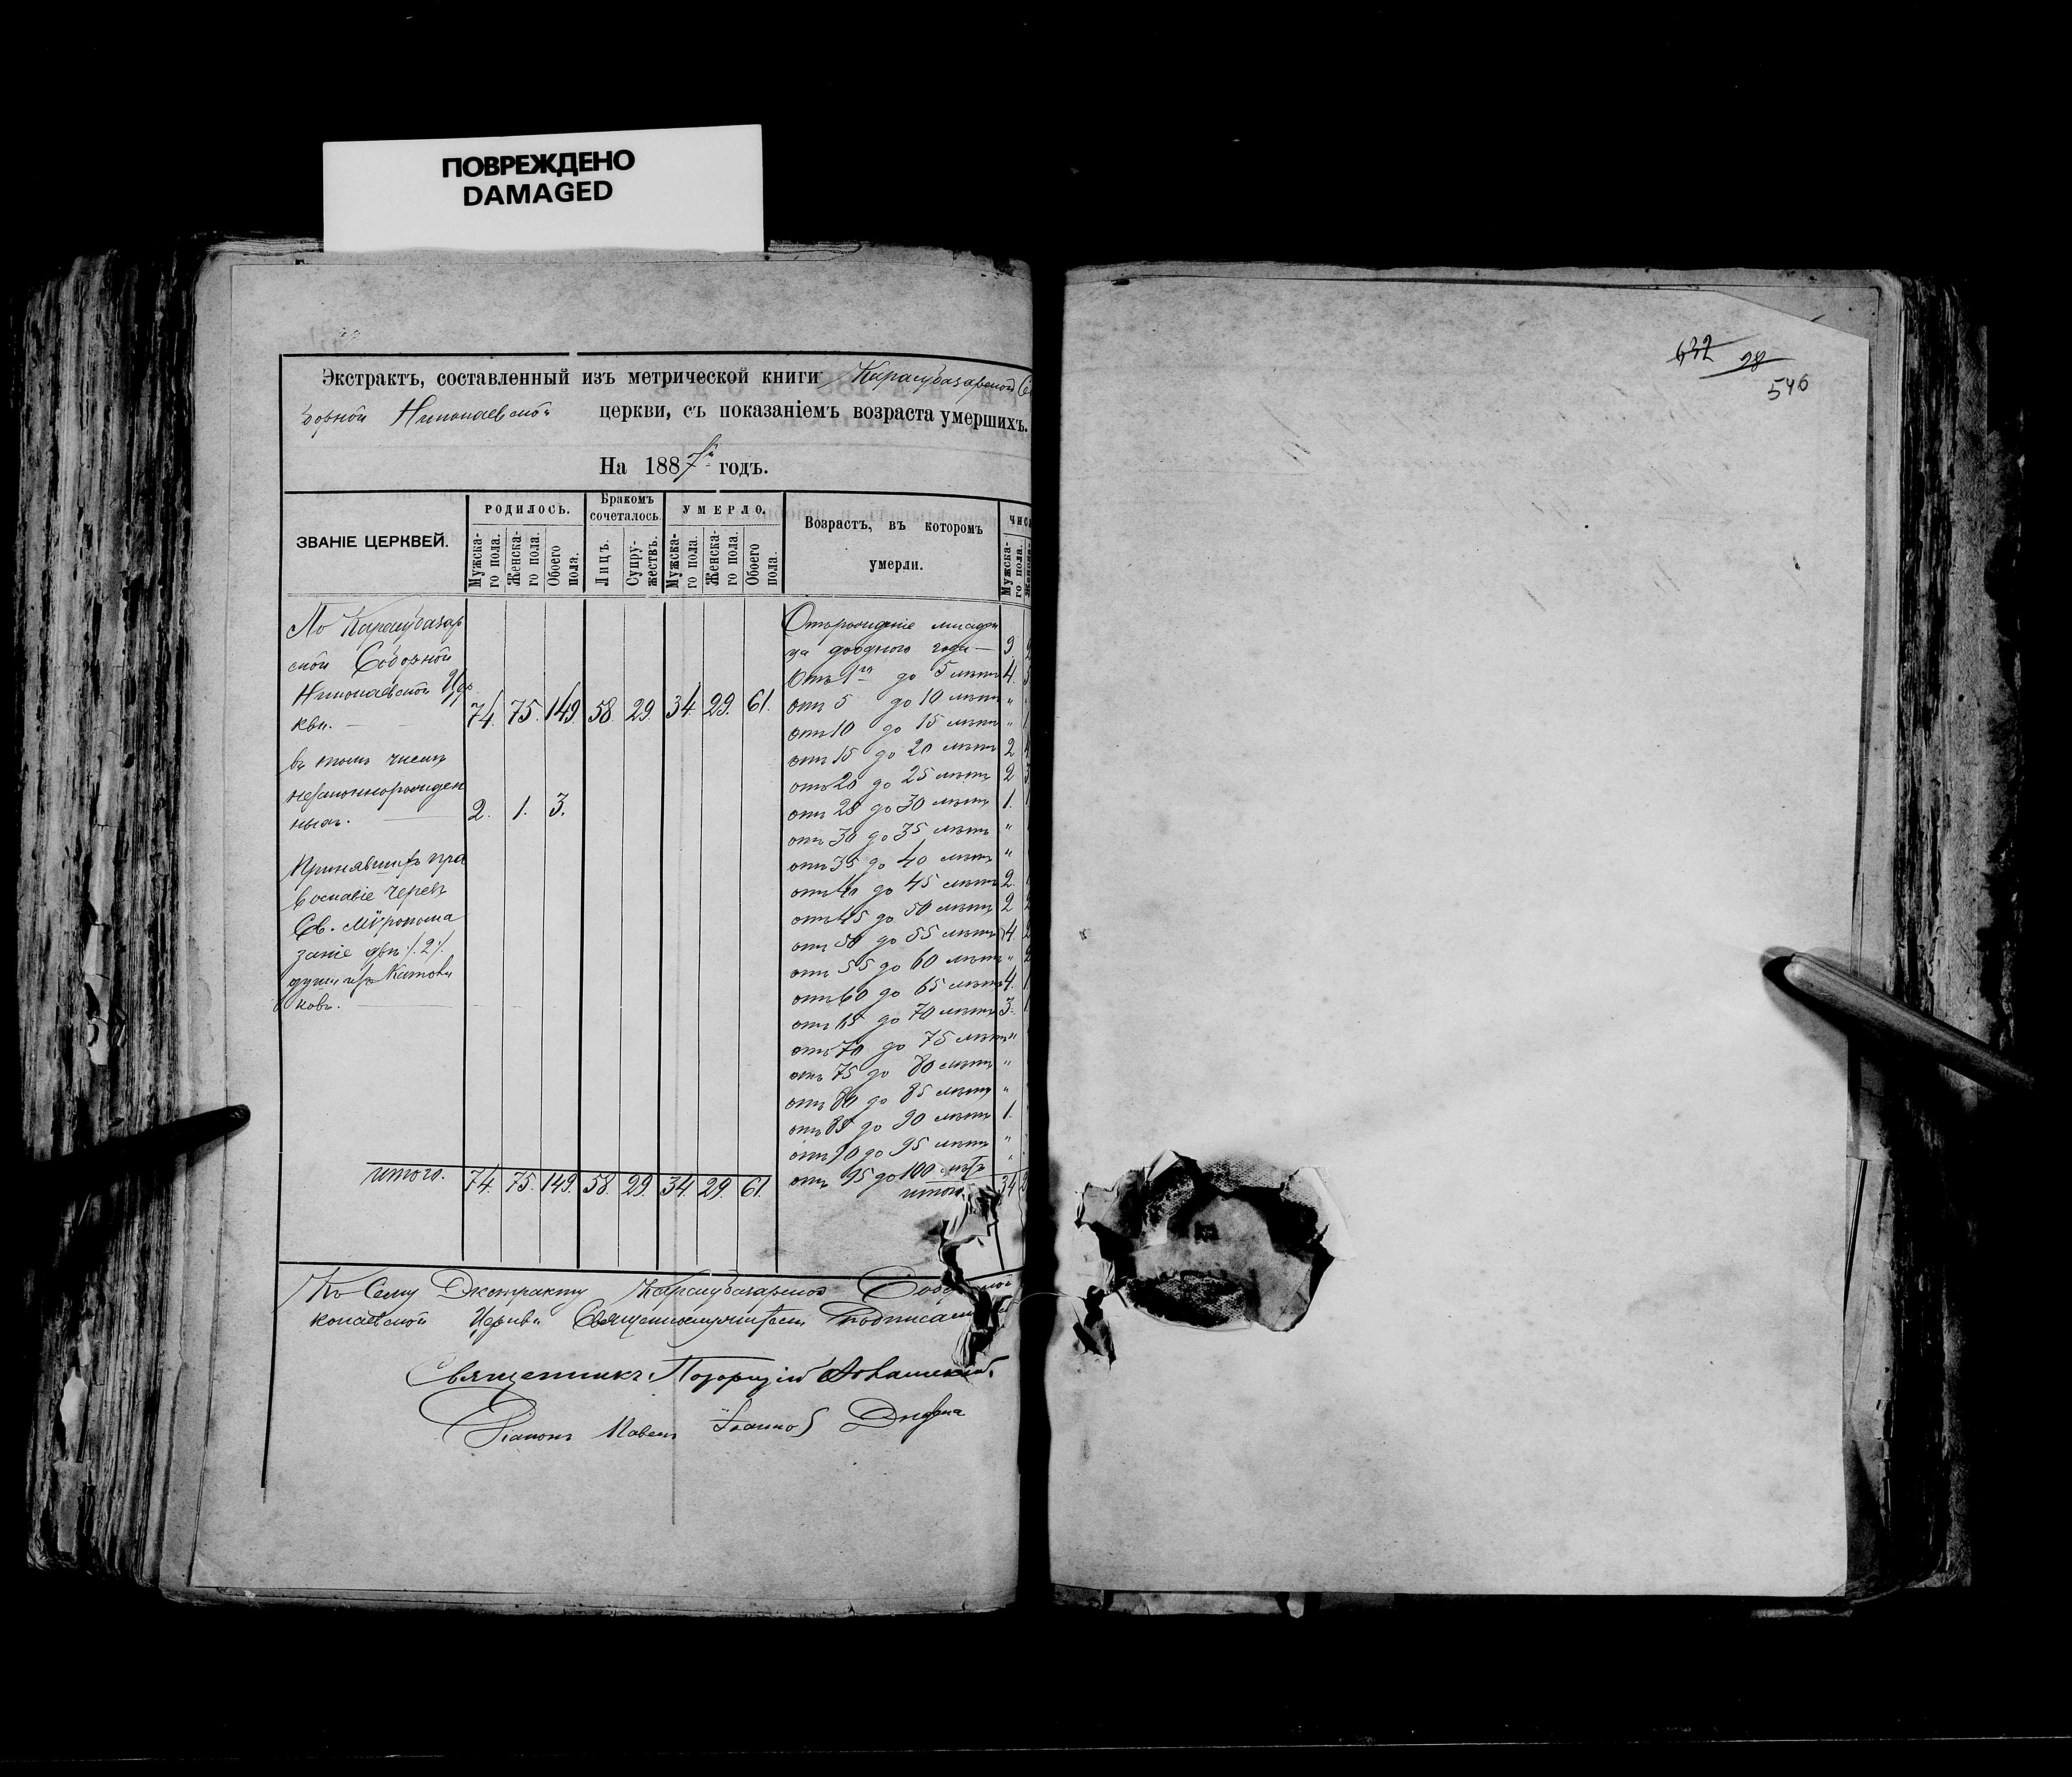 ПОВРЕЖДЕНО
DAMAGED
Экстрактъ, составленный изъ метрической книги Карасубазарской Со
борной Николаевской церкви, съ показаніемъ возраста умершихъ.
На 1887й годъ.
ЗВАНІЕ ЦЕРКВЕЙ.
РОДИЛОСЬ.
Мужска-
го пола.
Женска-
го пола.
Обоего
пола.
Бракомъ
сочеталось.
Лицъ.
Супру-
жествъ.
УМЕРЛО.
Мужска-
го пола.
Женска-
го пола.
Обоего
пола
Возрастъ, въ которомъ
умерли.
Мужска-
го пола.
По Карасубазар
ской Соборной
Николаевской Цер
кви. 74. 75. 149 58. 29. 34. 29. 61.
въ томъ числѣ
незаконнорожден
ныхъ. 2. 1. 3.
Принявшихъ пра
вославіе чрезъ
Св. Мѵропома
заніе двѣ /. 2 /.
души изъ Католи
ковъ.
Итого. 74. 75. 149. 58. 29. 34. 29. 61.
до одного года 9.
Отъ 1го до 5 лѣтъ 4.
отъ 5 до 10 лѣтъ "
отъ 10 до 15 лѣтъ "
отъ 15 до 20 лѣтъ 2
отъ 20 до 25 лѣтъ 2
отъ 25 до 30 лѣтъ 1.
отъ 30 до 35 лѣтъ "
отъ 35 до 40 лѣтъ "
отъ 40 до 45 лѣтъ 2.
отъ 45 до 50 лѣтъ 2
отъ 50 до 55 лѣтъ 4.
отъ 55 до 60 лѣтъ "
отъ 60 до 65 лѣтъ 4.
отъ 65 до 70 лѣтъ 3.
отъ 70 до 75 лѣтъ "
отъ 75 до 80 лѣтъ "
отъ 80 до 85 лѣтъ "
отъ 85 до 90 лѣтъ 1.
отъ 90 до 95 лѣтъ "
отъ 95 до 100 лѣтъ "
итого 34
Къ Сему Экстракту Карасубазарской
колаевской Церкви Священнослужители
Священникъ Порфирій
Діаконъ Павелъ
632 98
546